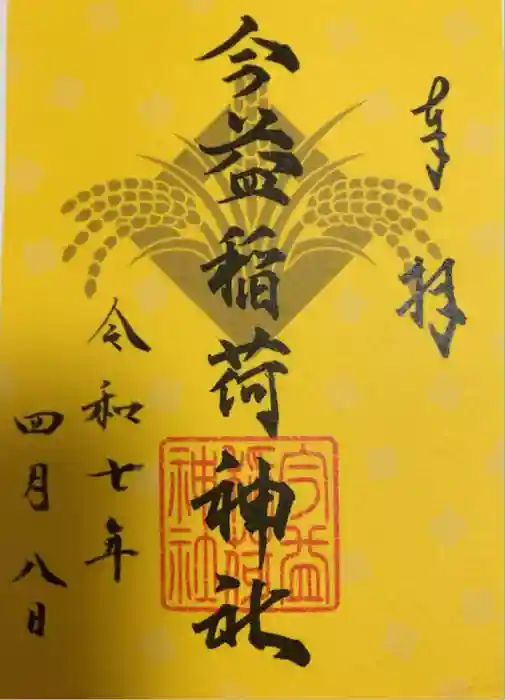 奉拝
今益稲荷神社
令和七年
四月八日
今益
稲荷
神社